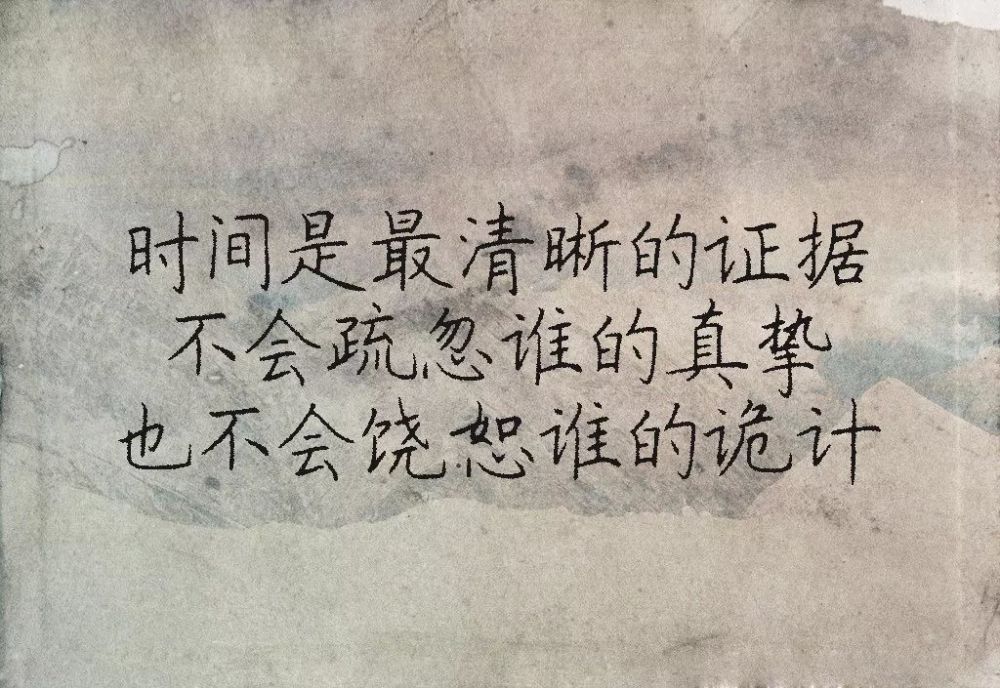 时间是最清晰的证据
不会疏忽谁的真挚
也不会饶恕谁的诡计